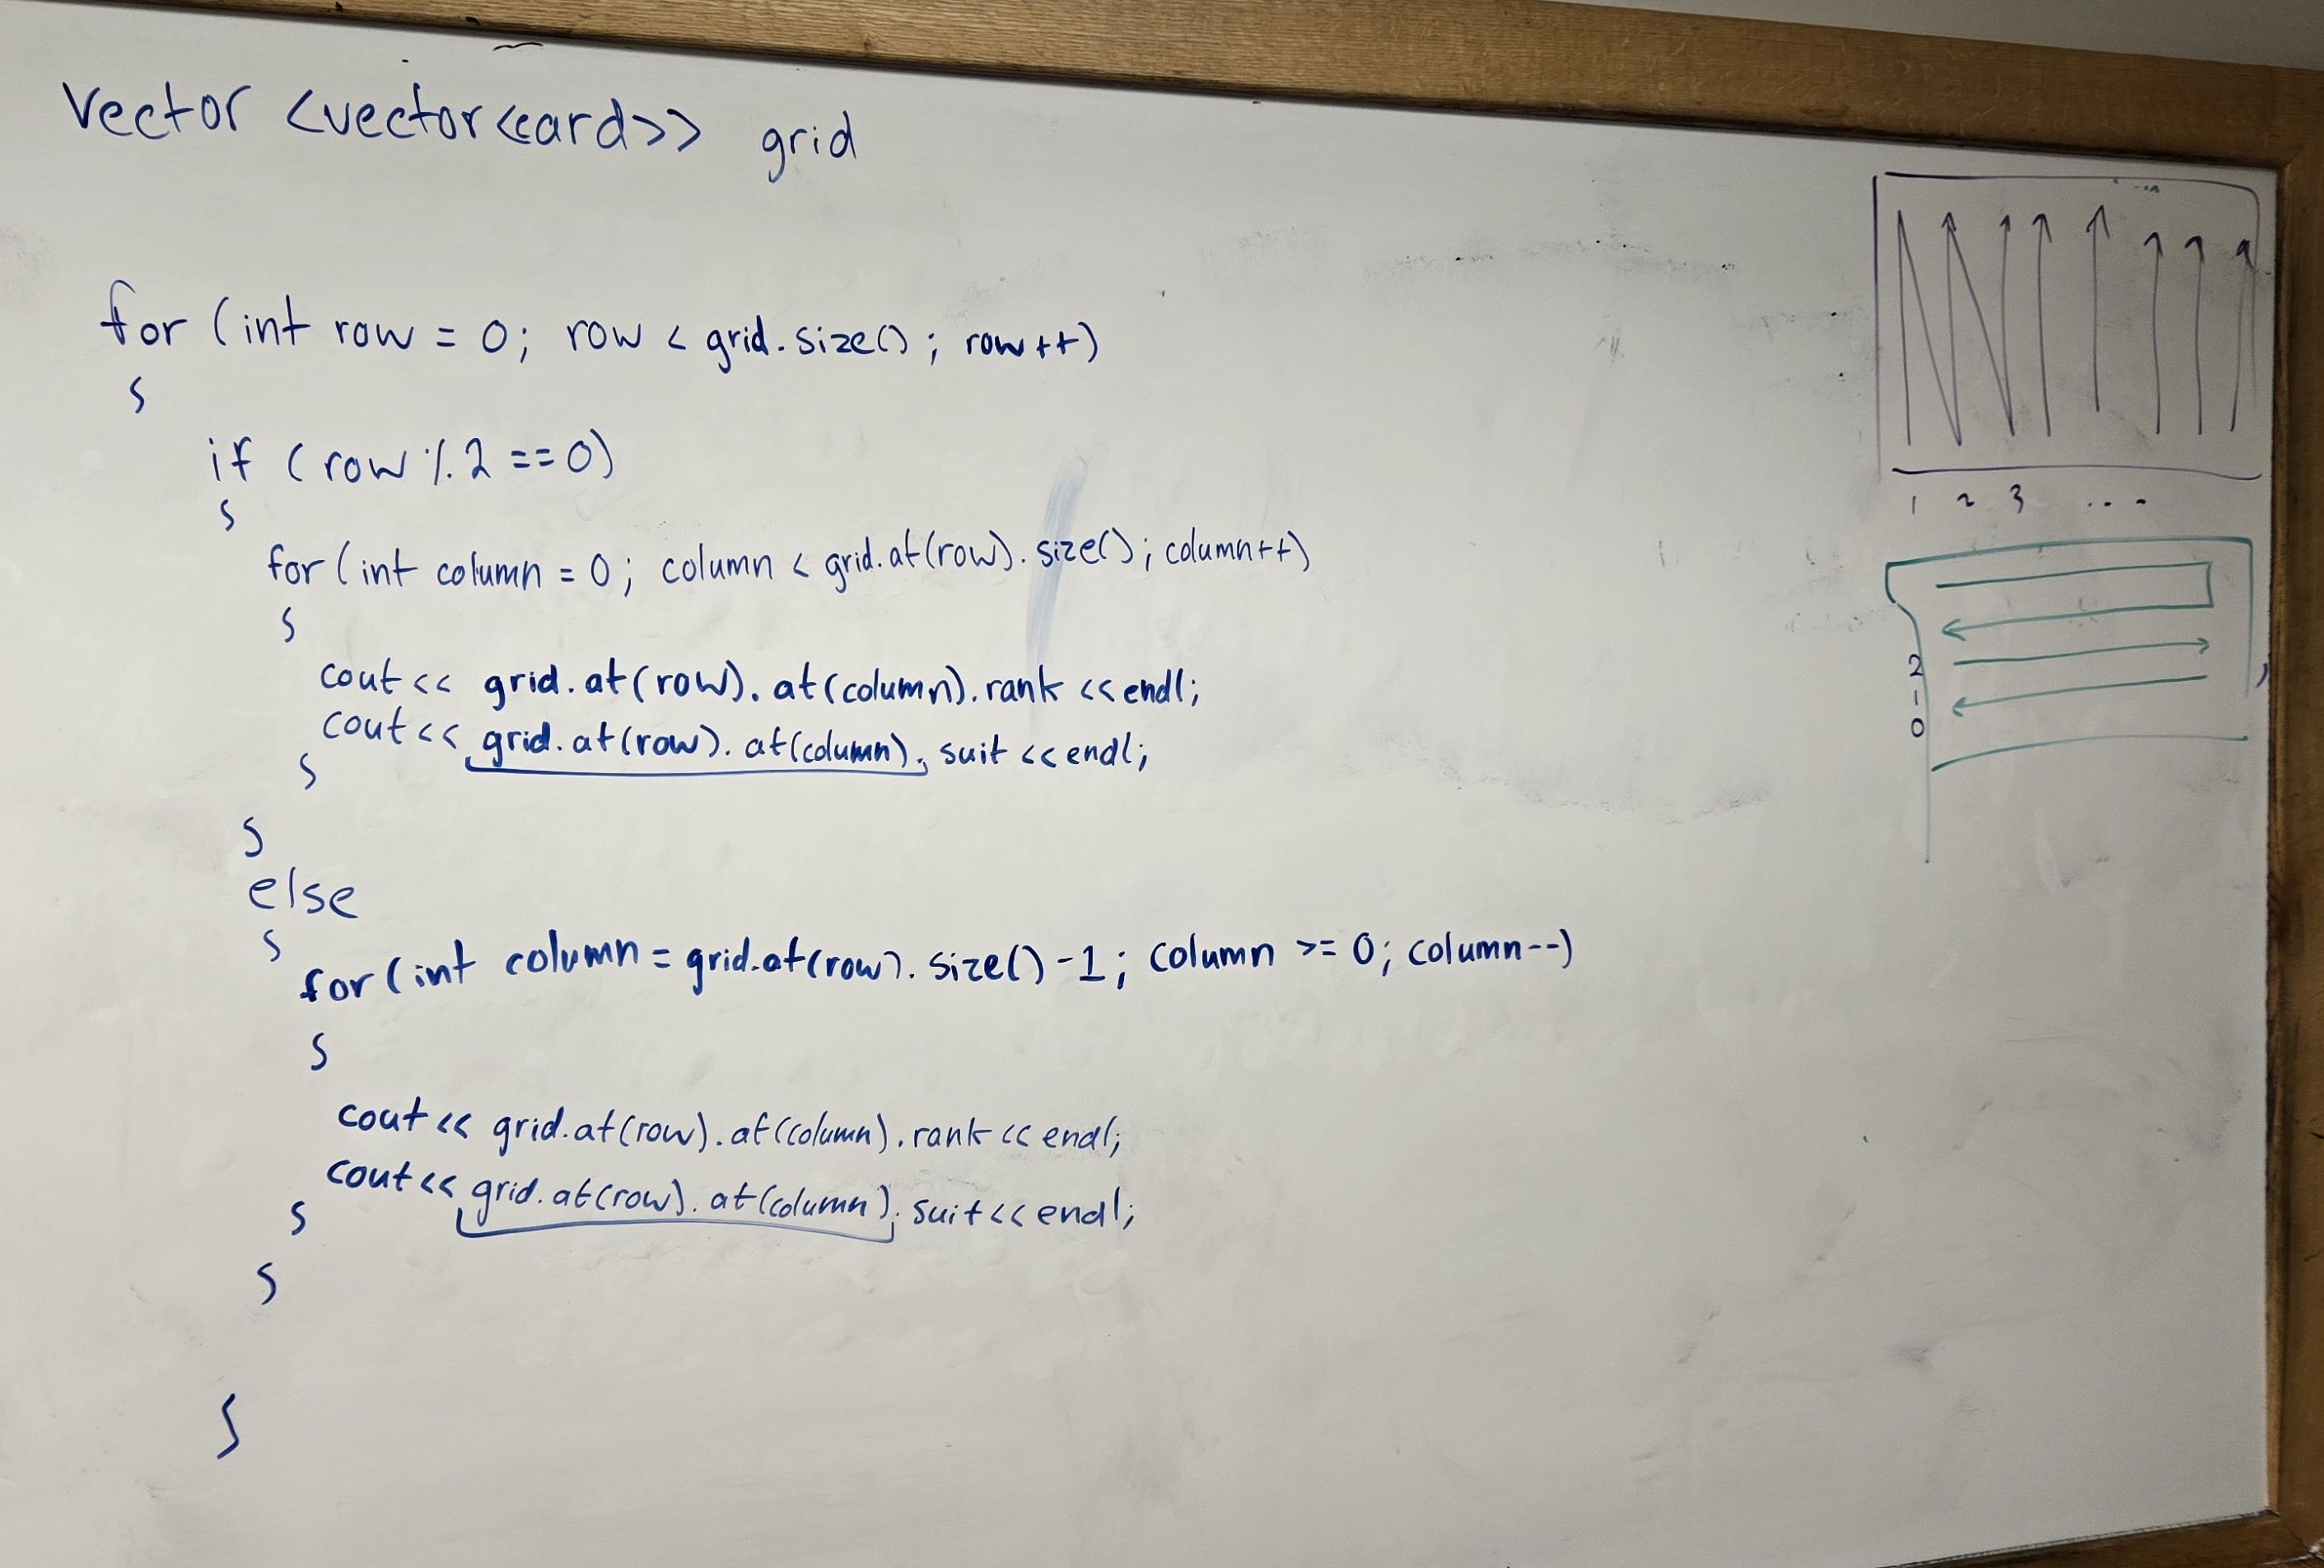 vector <vector<card>> grid
for (int row = 0; row < grid.size(); row++)
{
if (row % 2 == 0)
{
for (int column = 0; column < grid.at(row).size(); column++)
{
cout << grid.at(row).at(column).rank << endl;
cout << grid.at(row).at(column).suit << endl;
}
}
else
{
for (int column = grid.at(row).size() - 1; column >= 0; column--)
{
cout << grid.at(row).at(column).rank << endl;
cout << grid.at(row).at(column).suit << endl;
}
}
}
1 2 3 ...
2
1
0